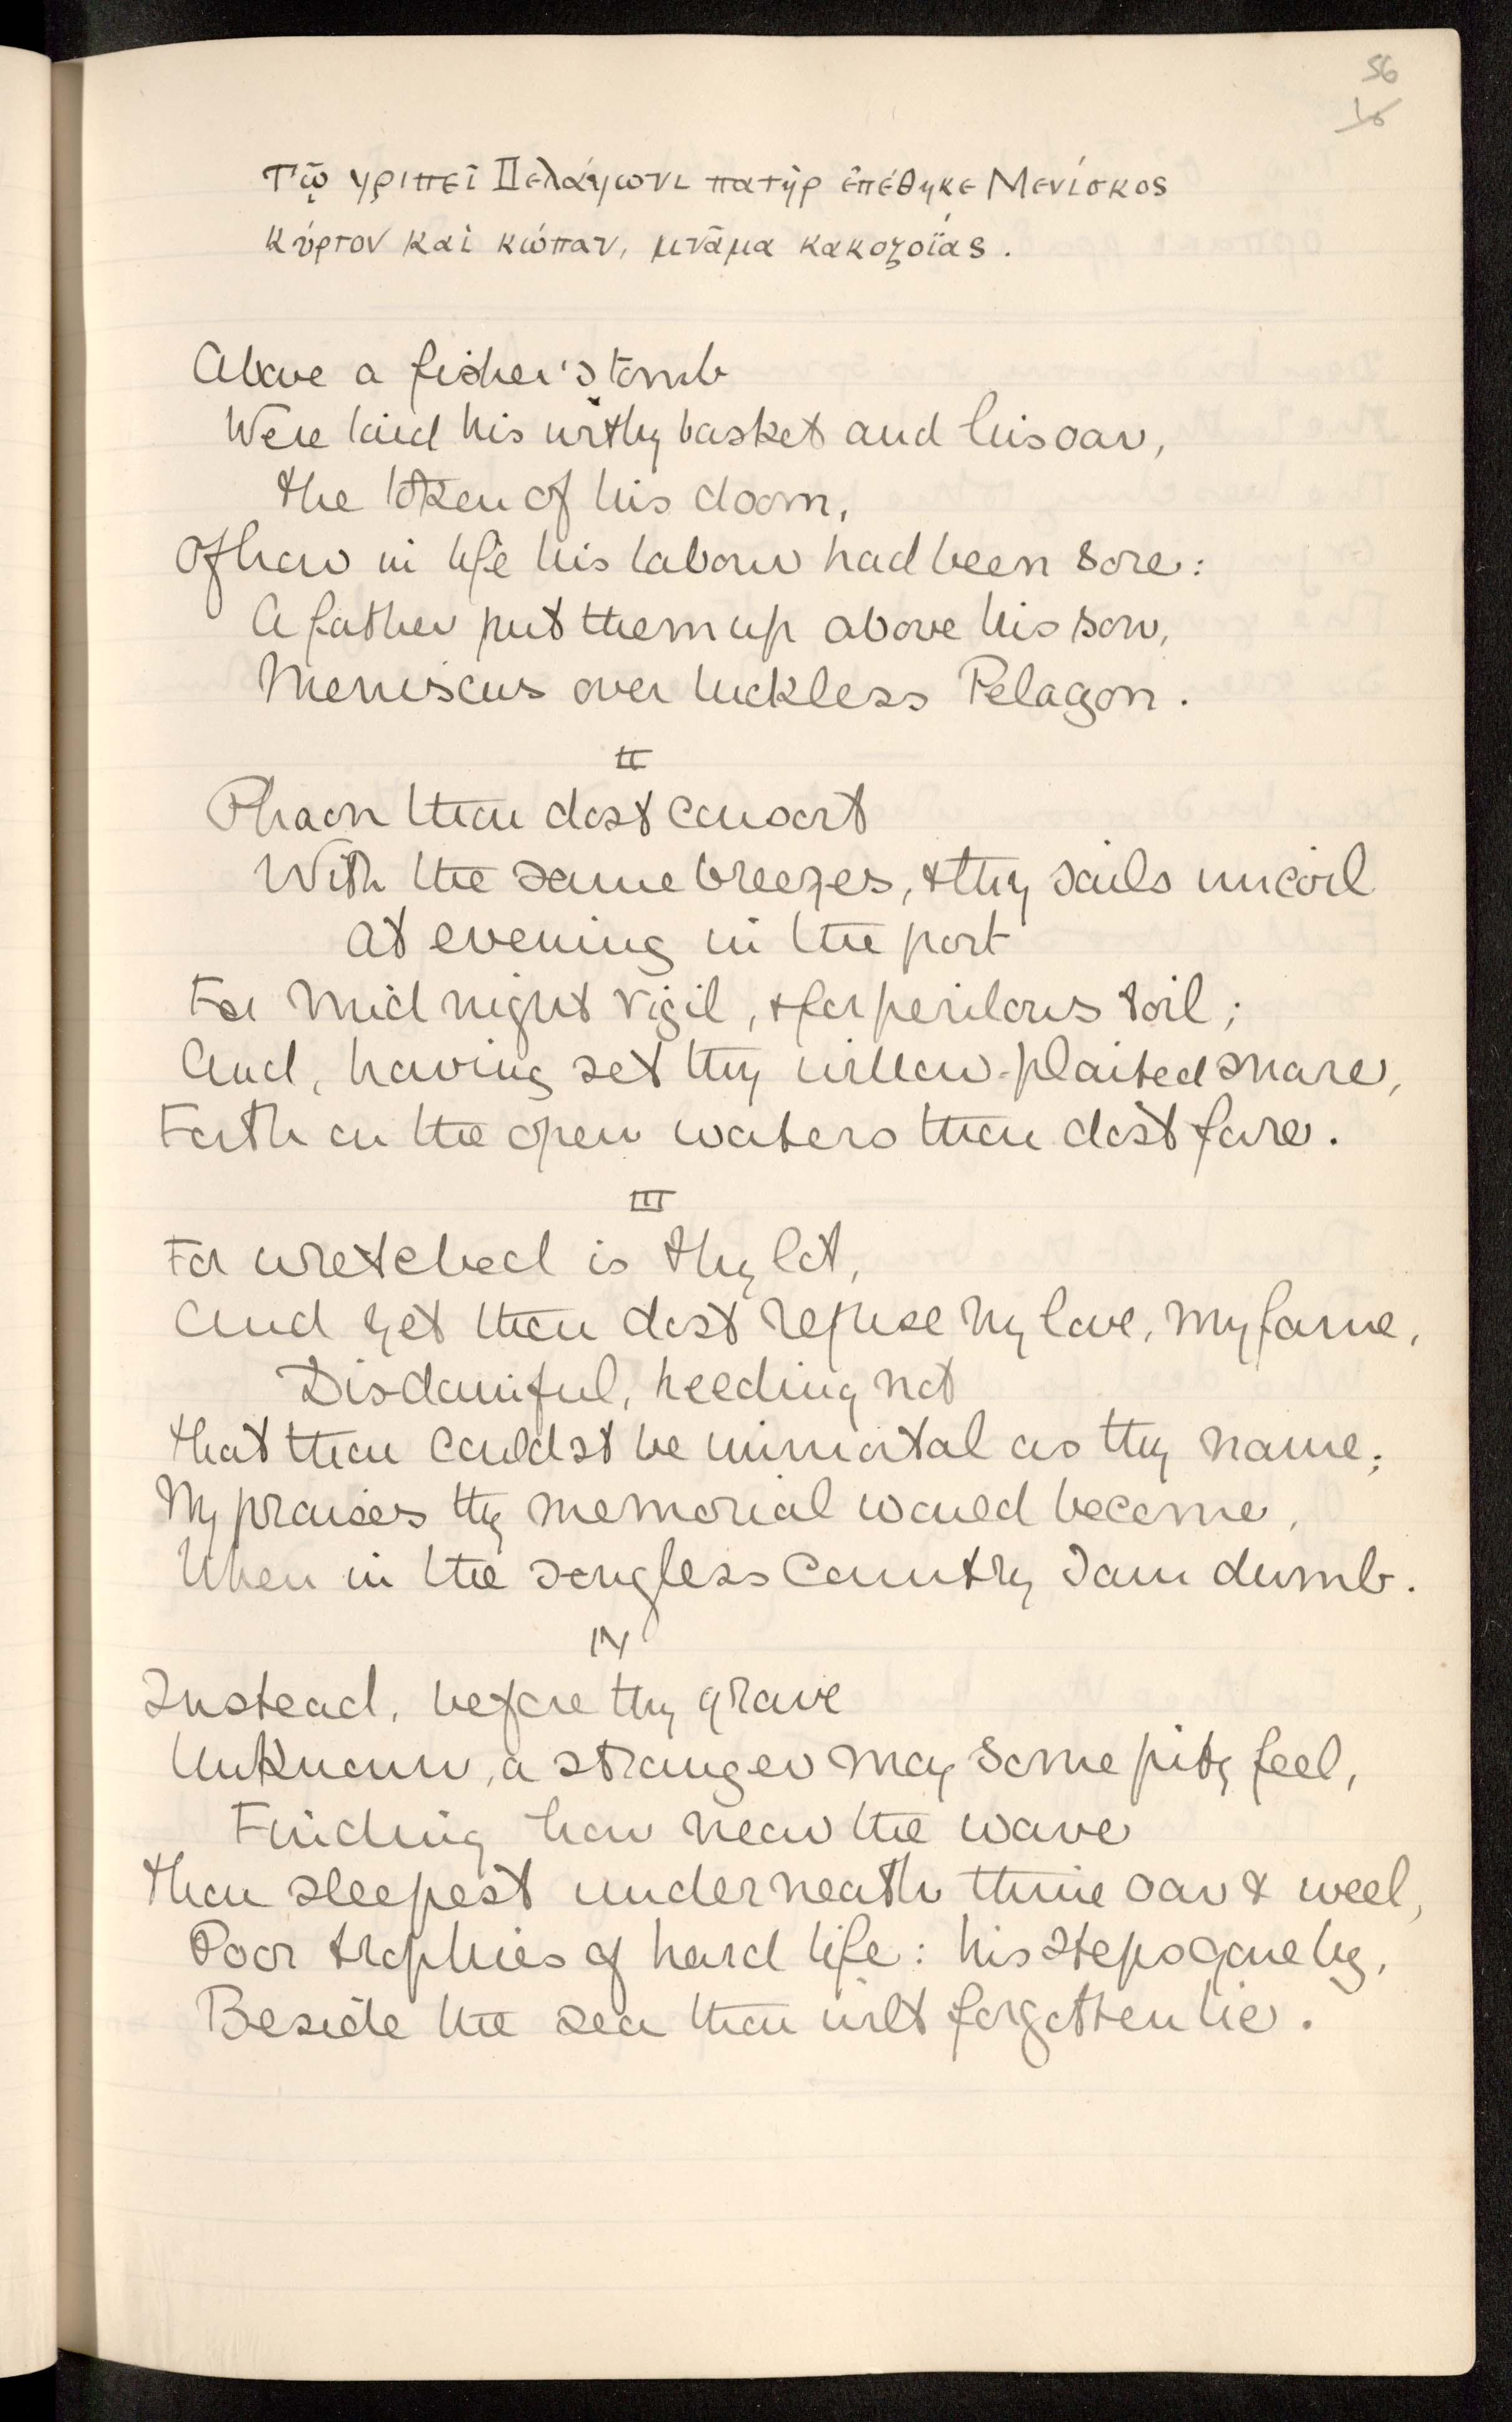 56
16
Τῷ γριπεῖ Πελάγωνι πατὴρ ἐπέθηκε Μενίσκος
κύρτον καὶ κώπαν, μνᾶμα κακοζοΐας.
Above a fisher's tomb
Were laid his withy basket and his oar,
The token of his doom,
Of how in life his labour had been sore:
A father put them up above his son,
Meniscus over luckless Pelagon.
II
Phaon thou dost consort
With the same breezes, & thy sails uncoil
At evening in the port
For midnight vigil, & for perilous toil;
And, having set thy willow-plaited snare,
Forth on the open waters thou dost fare.
III
For wretched is thy lot,
And yet thou dost refuse my love, my fame,
Disdainful, heeding not
That thou couldst be immortal as thy name;
My praises thy memorial would become,
When in the songless country I am dumb.
IV
Instead, before thy grave
Unknown, a stranger may some pity feel,
Finding how near the wave
Thou sleepest underneath thine oar & weel,
Poor trophies of hard life: his steps gone by,
Beside the sea thou wilt forgotten lie.